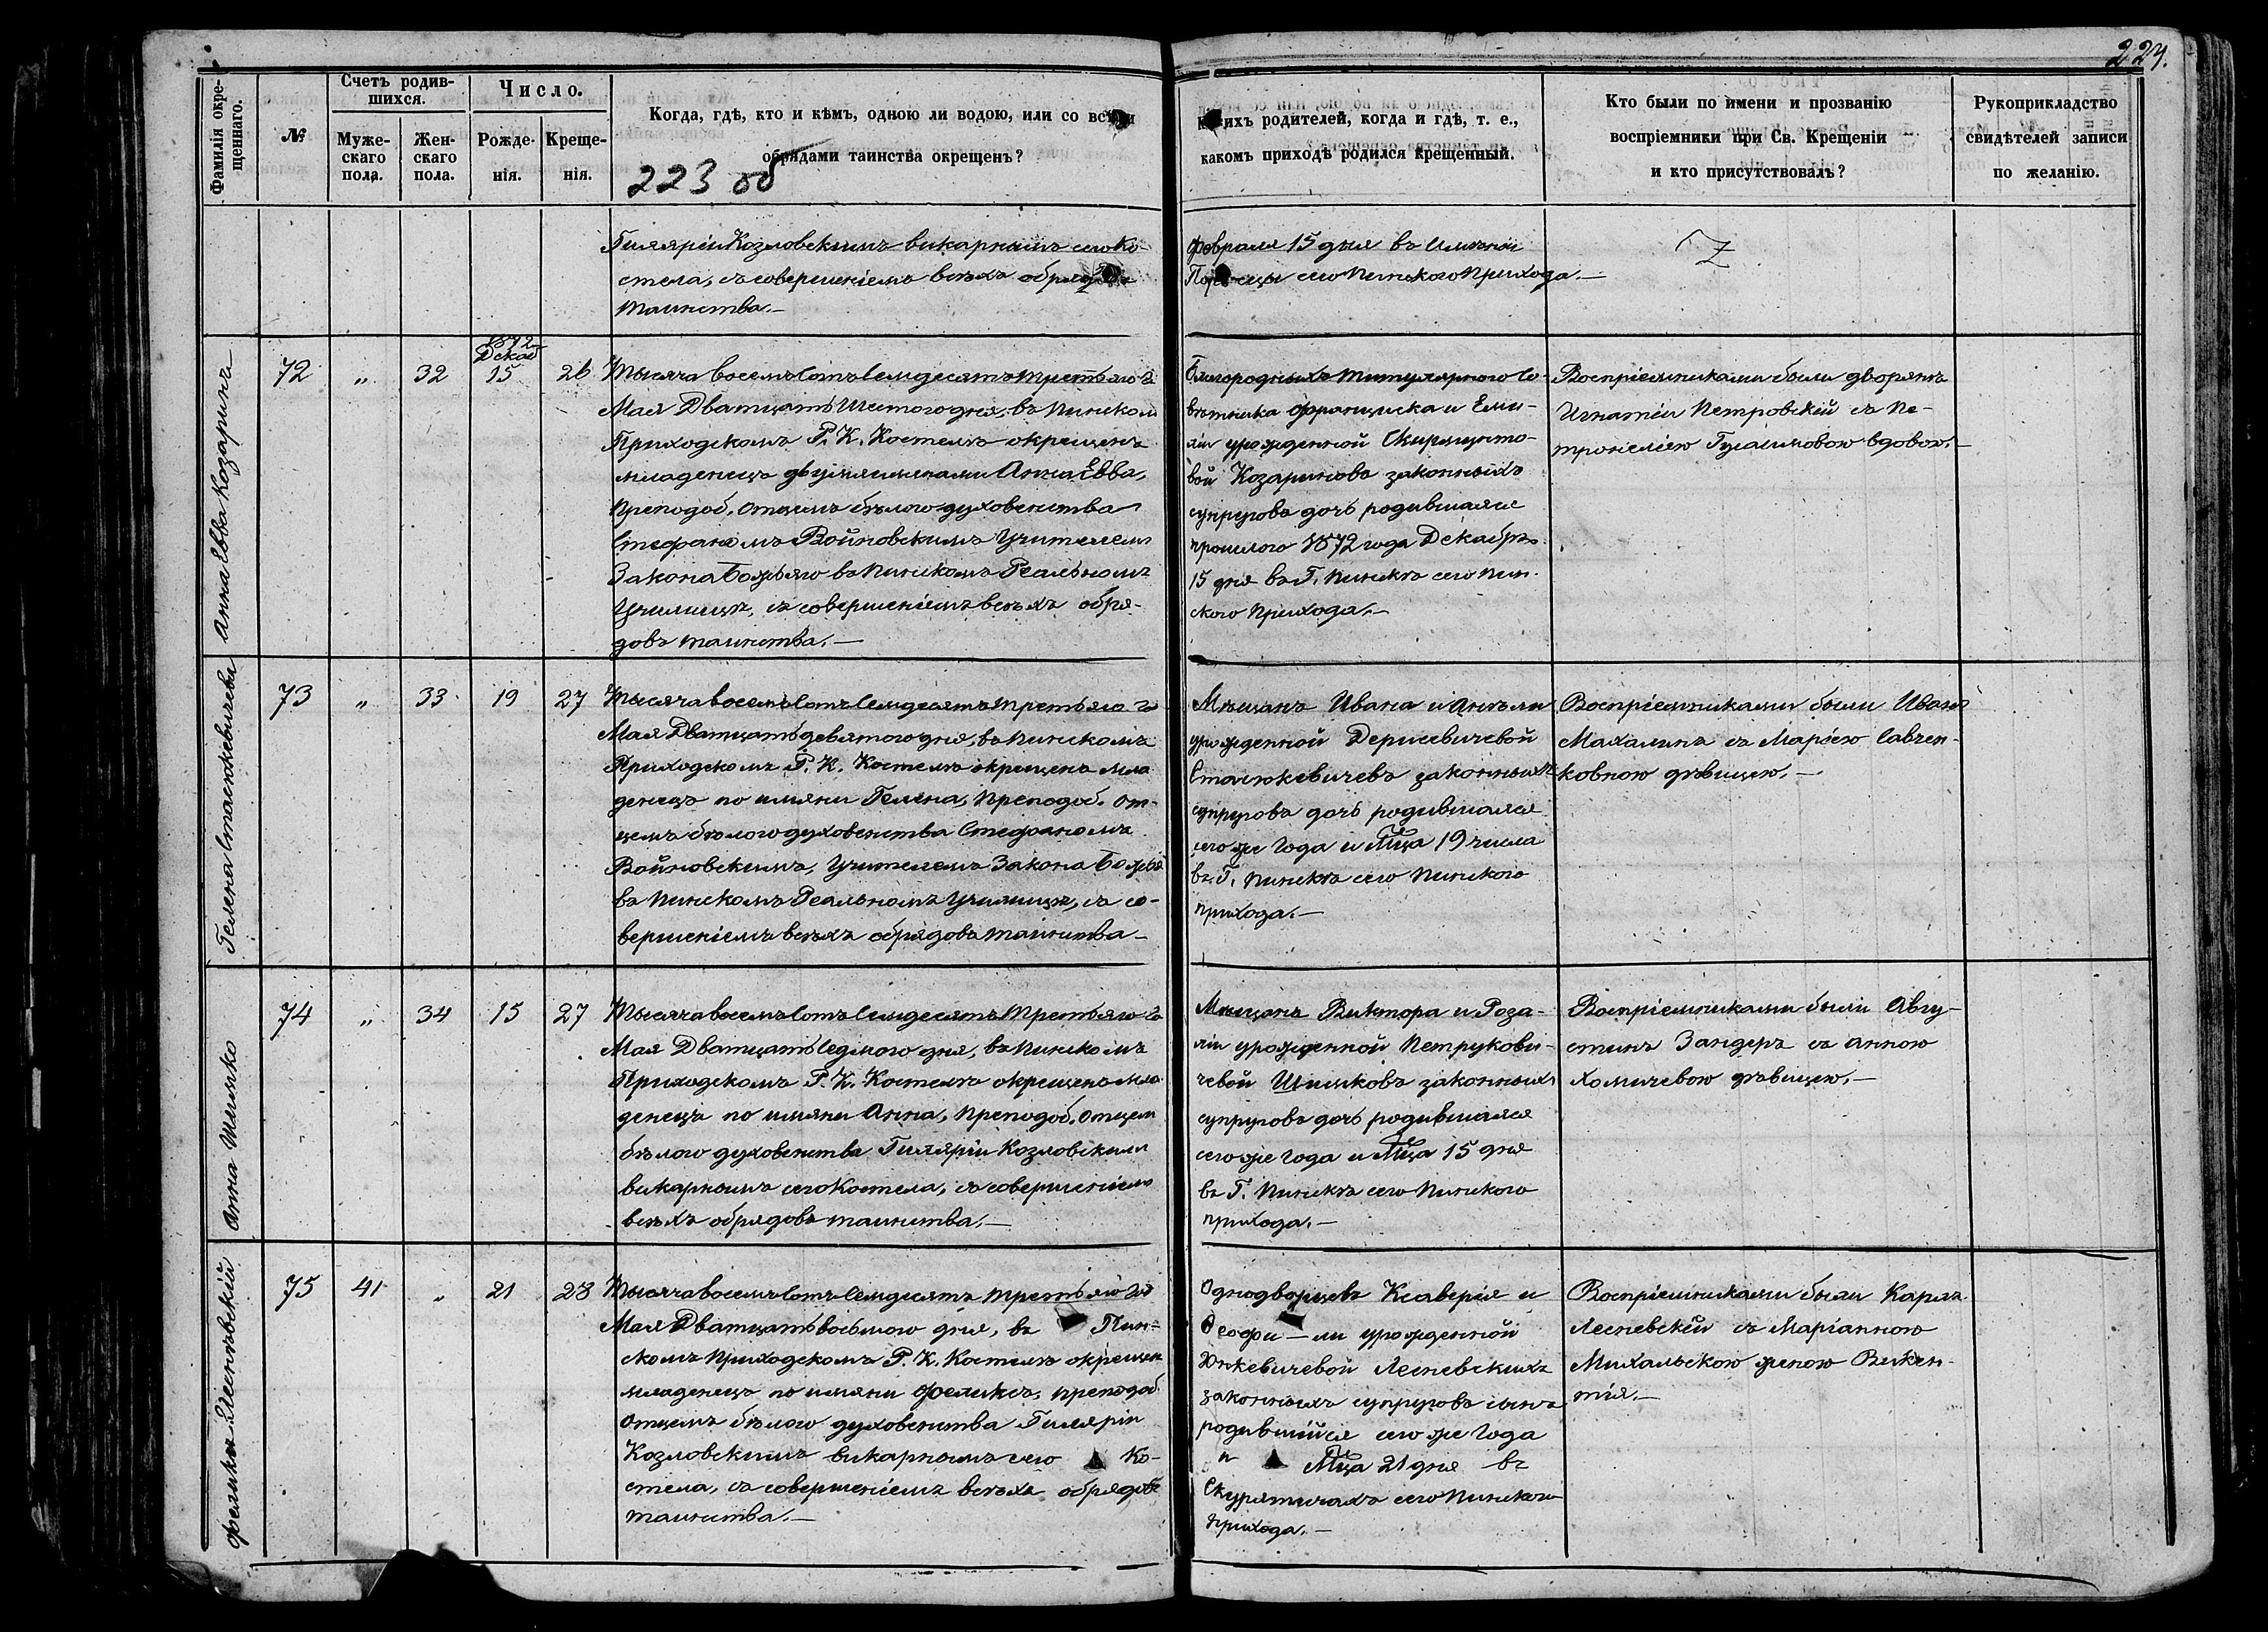 224.
Фамилія окре-
щеннаго.
№
Счетъ родив-
шихся.
Муже-
скаго
пола.
Жен-
скаго
пола.
Число.
Рожде-
нія.
Креще-
нія.
Когда, гдѣ, кто и кѣмъ, одною ли водою, или со всѣми
обрядами таинства окрещенъ?
223 об
какихъ родителей, когда и гдѣ, т. е.,
какомъ приходѣ родился крещенный.
Кто были по имени и прозванію
воспріемники при Св. Крещеніи
и кто присутствовалъ?
Рукоприкладство
свидѣтелей записи
по желанію.
Гиляріи Козловскимъ викарнымъ сего Ко-
стела, съ совершеніемъ всѣхъ обрядовъ
таинства.—
Февраля 15 дня въ Имѣніи
сего Пинскаго Прихода.—
Анна Евва Козаринъ
72
„
32
1872
Декаб
15
26
Тысяча восемъ сотъ семдесятъ третьяго г.
Мая Дватцать Шестого дня, въ Пинском
Приходскомъ Р. К. Костелѣ окрещенъ
младенецъ двумя именами Анна Евва,
Преподоб. Отцемъ бѣлого духовенства
Стефаномъ Войновскимъ Учителемъ
Закона Божьяго въ Пинскомъ Реальномъ
Училищѣ, съ совершеніемъ всѣхъ обря-
довъ таинства.—
Благородныхъ Титулярного Со-
вѣтника Франциска и Еми-
ліи урожденной Скирмунто-
вой Козариновъ законныхъ
супруговъ дочь родившаяся
прошлого 1872 года Декабря
15 дня въ Г. Пинскѣ сего Пин-
ского Прихода.—
Воспріемниками были дворянъ
Игнатіи Петровскій съ Пе-
тронелею вдовою.—
Гелена Сталюкевичева
73
„
33
19
27
Тысяча восемъ сотъ семдесятъ третьяго г.
Мая Дватцать девятого дня, въ Пинскомъ
Приходскомъ Р. К. Костелѣ окрещенъ мла
денецъ по имяни Гелена, Преподоб. От-
цемъ бѣлого духовенства Стефаномъ
Войновскимъ, Учителемъ Закона Божья
въ Пинскомъ Реальномъ Училищѣ, съ со-
вершеніемъ всѣхъ обрядовъ таинства—
Мѣщанъ Ивана и Анѣли
урожденной Дерисевичевой
Сталюкевичевъ законныхъ
супруговъ дочь родившаяся
сего же года и Мца 19 числа
въ Г. Пинскѣ сего Пинского
прихода.—
Воспріемниками были Иванъ
Махалинъ съ Маріею Савчен-
ковною дѣвицею.—
Анна Шишко
74
„
34
15
27
Тысяча восемъ сотъ семдесятъ третьяго г.
Мая Дватцать седмого дня, въ Пинскомъ
Приходскомъ Р. К. Костелѣ окрещенъ мла
денецъ по имяни Анна, Преподоб. Отцем
бѣлого духовенства Гиляріи Козловскимъ
викарнымъ сего Костела, съ совершеніемъ
всѣхъ обрядовъ таинства.—
Мѣщанъ Виктора и Роза-
ліи урожденной Петрукови-
чевой Шишковъ законныхъ
супруговъ дочь родившаяся
сего же года и Мца 15 дня
въ Г. Пинскѣ сего Пинского
прихода.—
Воспріемниками были Авгу-
стинъ Зандеръ съ Анною
Хомичевою дѣвицею.—
Феликсъ Лесневскій
75
41
„
21
28
Тысяча восемъ сотъ семдесятъ третьяго год
Мая Дватцать восьмого дня, въ Пин-
скомъ Приходскомъ Р. К. Костелѣ окрещен
младенецъ по имяни Феликсъ, преподоб.
Отцемъ бѣлого духовенства Гиляріи
Козловскимъ викарнымъ сего Ко-
стела, съ совершеніемъ всѣхъ обрядовъ
таинства.—
Однодворцевъ Ксаверія и
Теофи—ли урожденной
Юнкевичевой Лесневскихъ
законныхъ супруговъ сынъ
родившійся сего же года
и Мца 21 дня въ
Скурятичахъ сего Пинского
прихода.—
Воспріемниками были Карлъ
Лесневскій съ Маріанною
Михальскою женою Викен-
тія.—